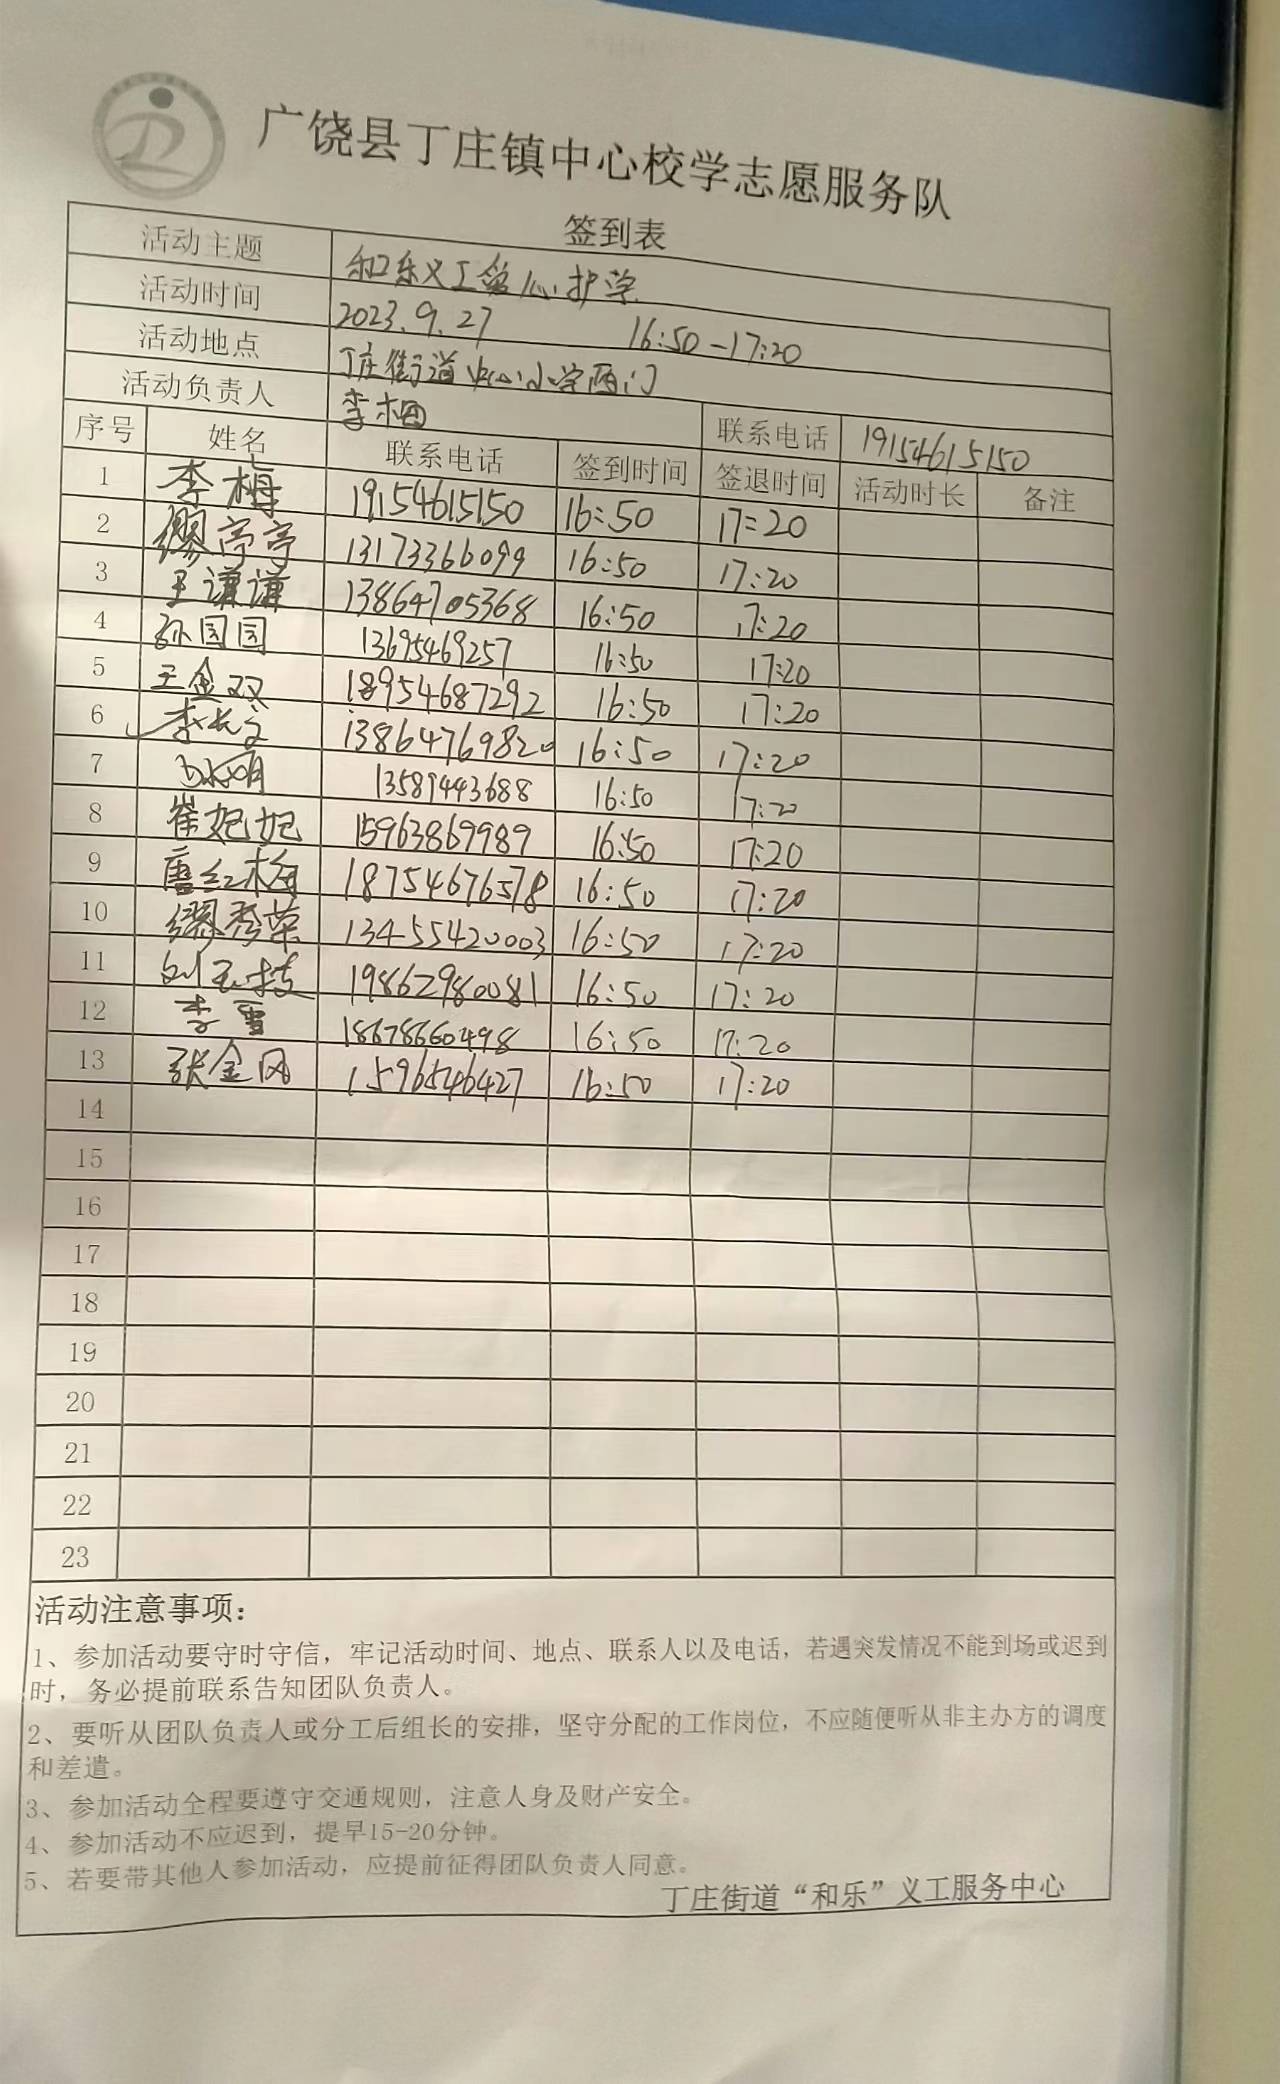 广饶县丁庄镇中心校学志愿服务队
签到表
活动主题 和乐义工爱心护学
活动时间 2023.9.27 16:50-17:20
活动地点 丁庄街道中心小学西门
活动负责人 李梅 联系电话 19154615150
序号 姓名 联系电话 签到时间 签退时间 活动时长 备注
1 李梅 19154615150 16:50 17:20
2 缪亭亭 13173366099 16:50 17:20
3 王谦谦 13864705368 16:50 17:20
4 孙园园 13695469257 16:50 17:20
5 王金双 18954687292 16:50 17:20
6 李长文 13864769820 16:50 17:20
7 13589443688 16:50 17:20
8 崔妃妃 15963869989 16:50 17:20
9 唐红梅 18754676578 16:50 17:20
10 缪秀荣 13455420003 16:50 17:20
11 刘玉枝 19862980081 16:50 17:20
12 李雪 18678660498 16:50 17:20
13 张金凤 15965246427 16:50 17:20
14
15
16
17
18
19
20
21
22
23
活动注意事项：
1、参加活动要守时守信，牢记活动时间、地点、联系人以及电话，若遇突发情况不能到场或迟到
时，务必提前联系告知团队负责人。
2、要听从团队负责人或分工后组长的安排，坚守分配的工作岗位，不应随便听从非主办方的调度
和差遣。
3、参加活动全程要遵守交通规则，注意人身及财产安全。
4、参加活动不应迟到，提早15-20分钟。
5、若要带其他人参加活动，应提前征得团队负责人同意。
丁庄街道“和乐”义工服务中心